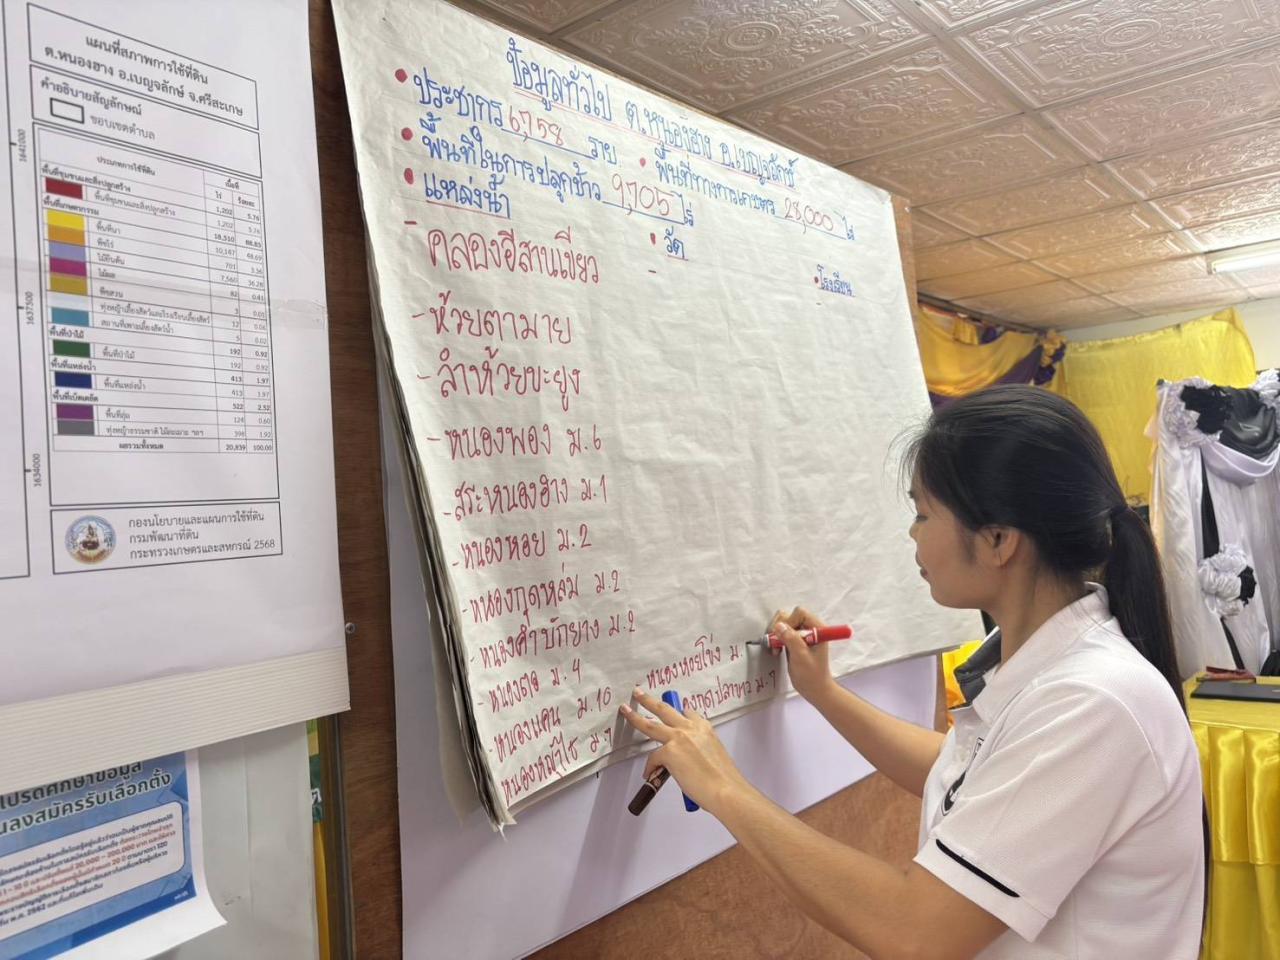 แผนที่สภาพการใช้ที่ดิน
ต.หนองฮาง อ.เบญจลักษ์ จ.ศรีสะเกษ
คำอธิบายสัญลักษณ์
ขอบเขตตำบล
ประเภทการใช้ที่ดิน เนื้อที่
ไร่ ร้อยละ
พื้นที่ชุมชนและสิ่งปลูกสร้าง 1,202 5.76
พื้นที่ชุมชนและสิ่งปลูกสร้าง 1,202 5.76
พื้นที่เกษตรกรรม 18,510 88.83
พื้นที่นา 10,147 48.69
พืชไร่ 701 3.36
ไม้ยืนต้น 7,560 36.28
ไม้ผล 82 0.41
พืชสวน 3 0.01
ทุ่งหญ้าเลี้ยงสัตว์และโรงเรือนเลี้ยงสัตว์ 12 0.06
สถานที่เพาะเลี้ยงสัตว์น้ำ 5 0.02
พื้นที่ป่าไม้ 192 0.92
พื้นที่ป่าไม้ 192 0.92
พื้นที่แหล่งน้ำ 413 1.97
พื้นที่แหล่งน้ำ 413 1.97
พื้นที่เบ็ดเตล็ด 522 2.52
พื้นที่ลุ่ม 124 0.60
ทุ่งหญ้าธรรมชาติ ไม้ละเมาะ ฯลฯ 398 1.92
ผลรวมทั้งหมด 20,839 100.00
กองนโยบายและแผนการใช้ที่ดิน
กรมพัฒนาที่ดิน
กระทรวงเกษตรและสหกรณ์ 2568
1641000
1637500
1634000
ข้อมูลทั่วไป ต.หนองฮาง อ.เบญจลักษ์
• ประชากร 6,758 ราย • พื้นที่ทางการเกษตร 28,000 ไร่
• พื้นที่ในการปลูกข้าว 9,705 ไร่
• แหล่งน้ำ • วัด • โรงเรียน
- คลองอีสานเขียว -
- ห้วยตามาย
- ลำห้วยขะยูง
- หนองพอง ม.6
- สระหนองฮาง ม.1
- หนองหอย ม.2
- หนองกุดหล่ม ม.2
- หนองคำบักยาง ม.2
- หนองตอ ม.4
- หนองแคน ม.10
- หนองหญ้าไซ ม.7
- หนองหอยโข่ง ม.
องกุดปลาขาว ม.7
โปรดศึกษาข้อมูล
นลงสมัครรับเลือกตั้ง